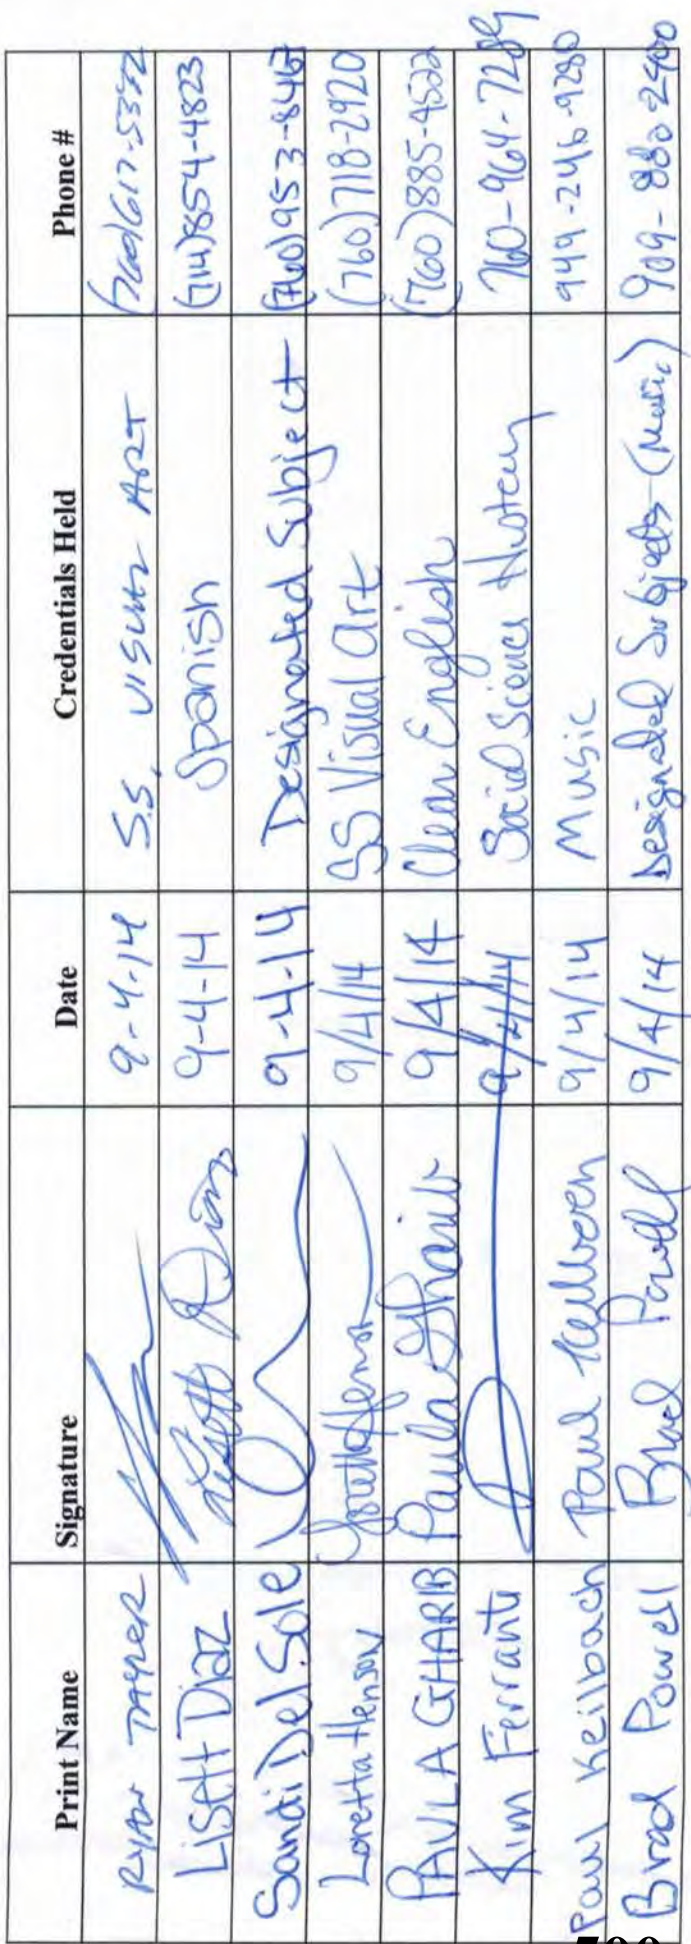 Print Name Signature Date Credentials Held Phone #
RYAN TAYLER 9-4-14 S.S, VISUAL ART (760)617-5372
Lisett Diaz Lisett Diaz 9-4-14 Spanish (714)854-4823
Sandi Del Sole 9-4-14 Designated Subject (760)953-8467
Loretta Henson Loretta Henson 9/4/14 SS Visual Art (760)718-2920
PAULA GHARIB Paula Gharib 9/4/14 Clear English (760)885-4522
Kim Ferranti 9/4/14 Social Science History 760-964-7289
Paul Keilbach Paul Keilbach 9/4/14 Music 949-246-9280
Brad Powell Brad Powell 9/4/14 Designated Subjects (Music) 909-880-2400